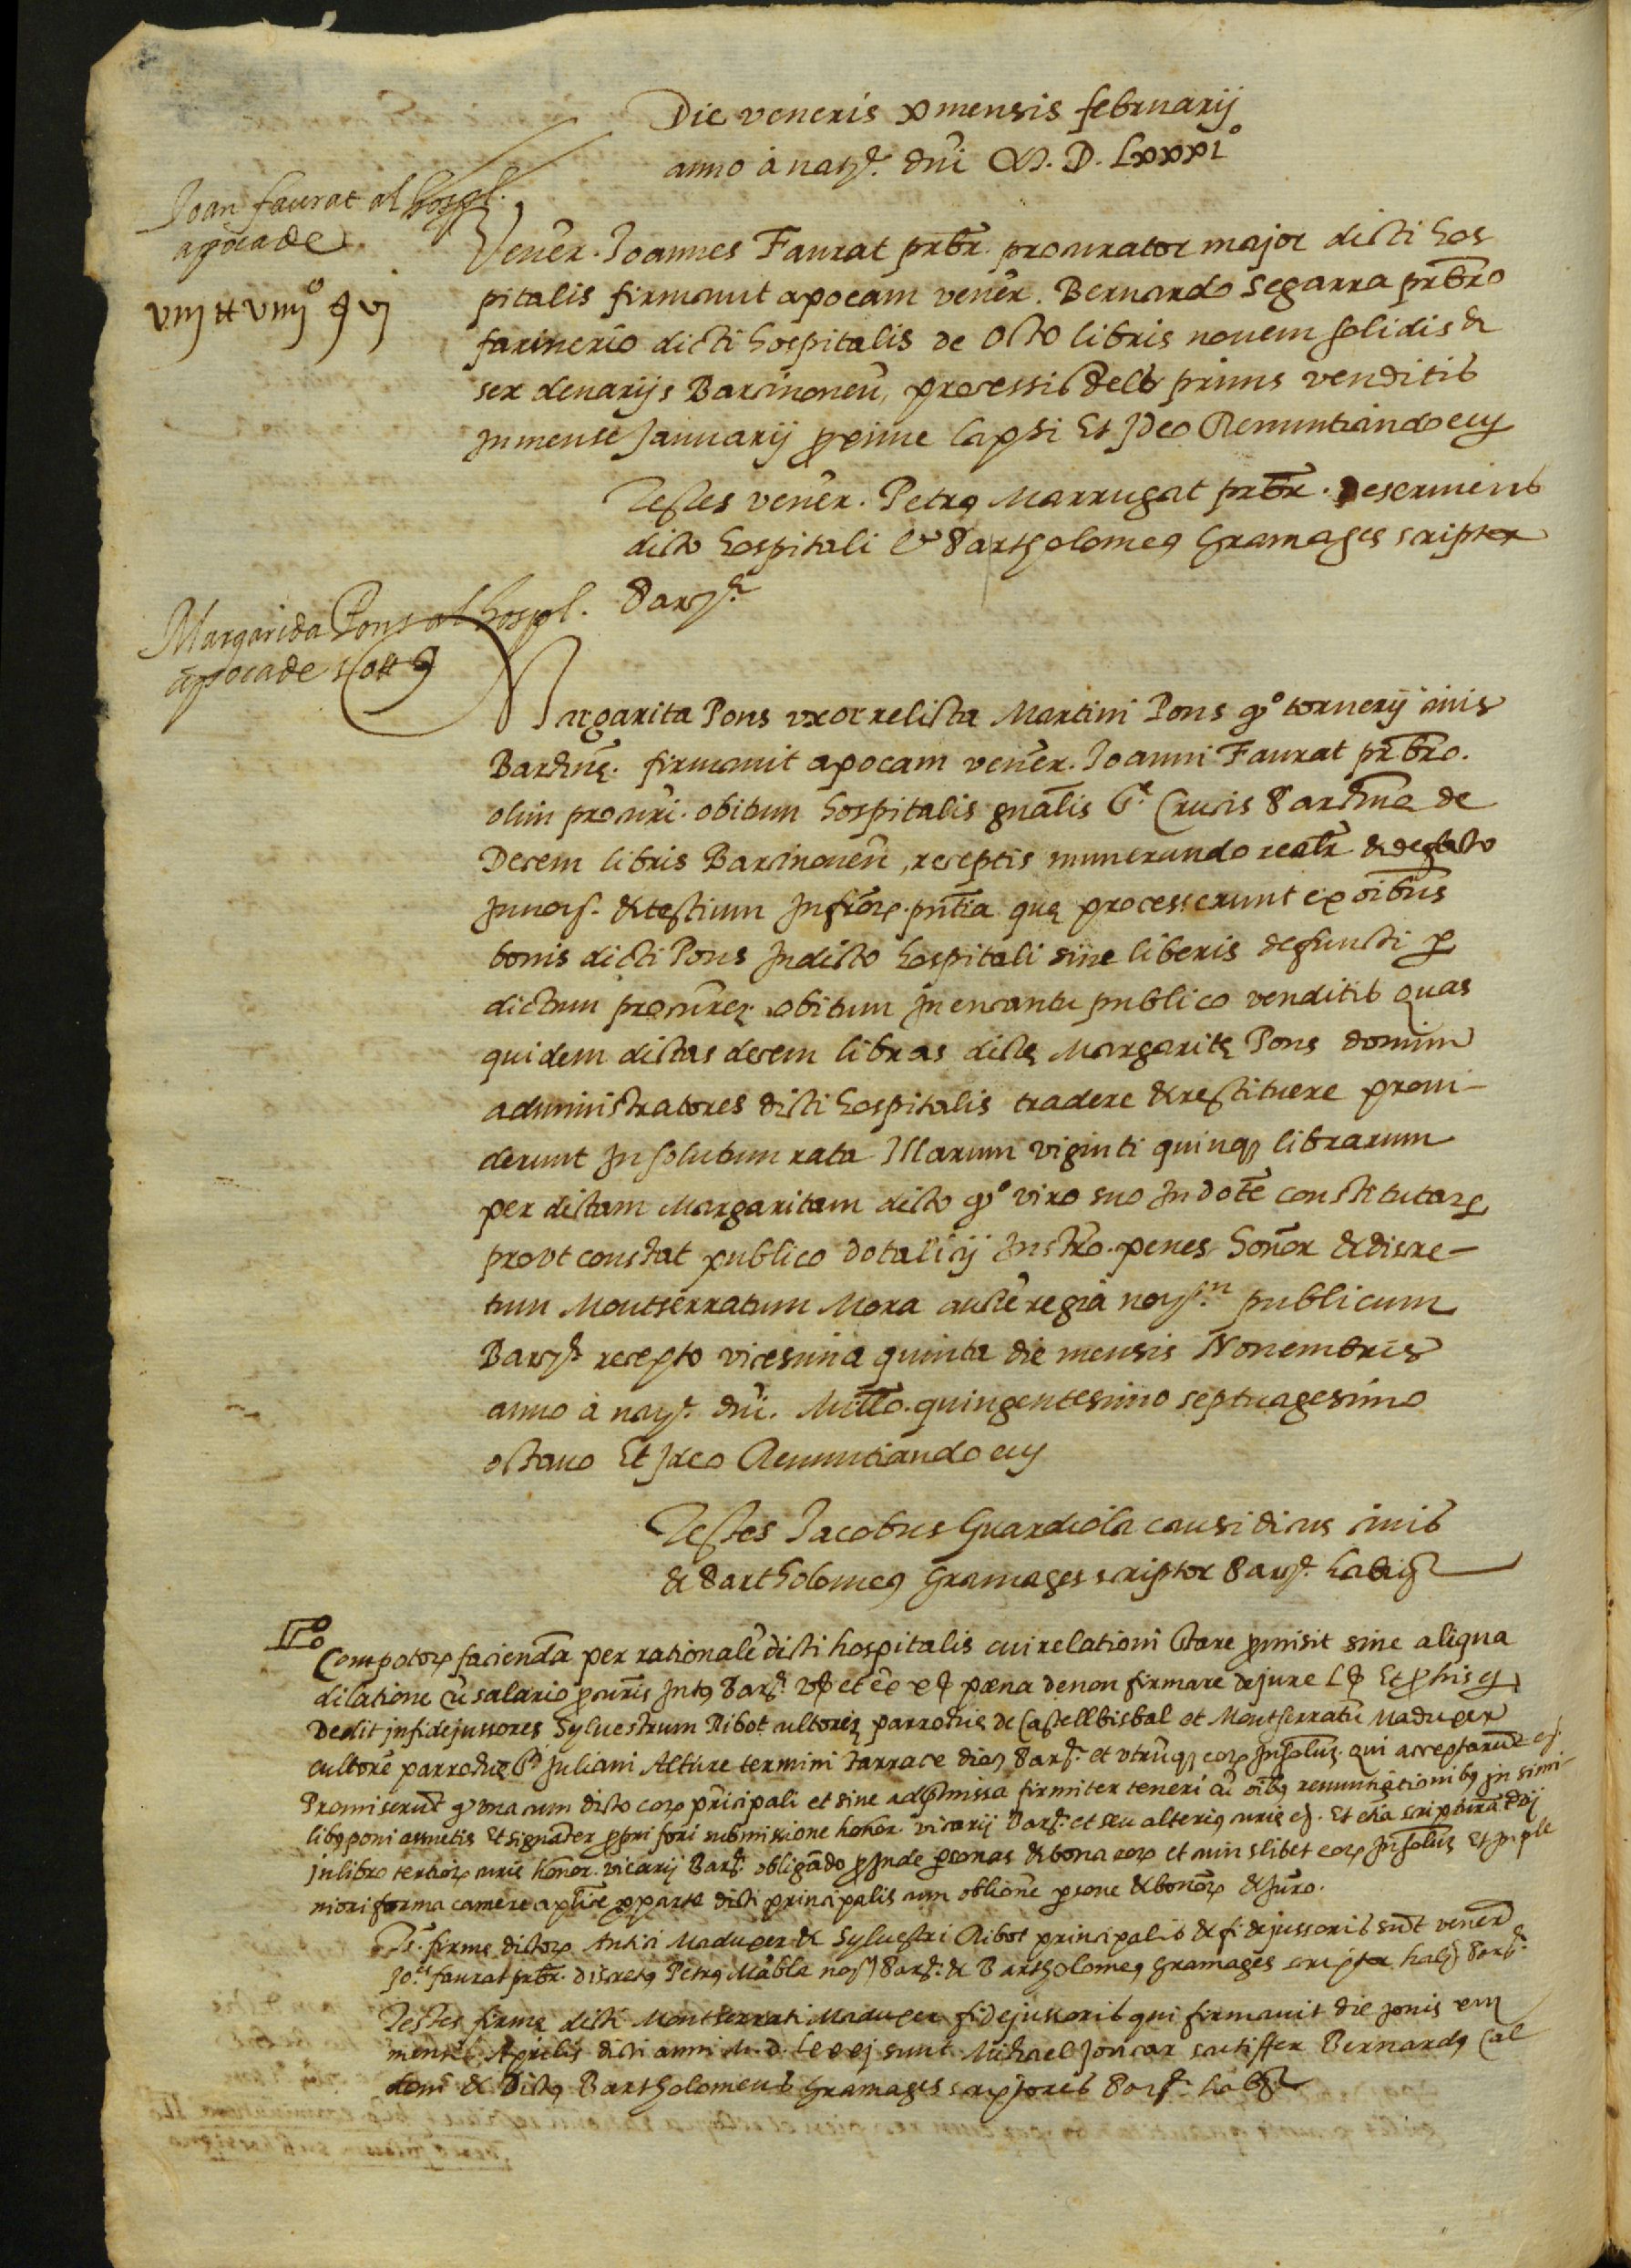 Die veneris x mensis februarij
anno à natt. dni M. D. Lxxxi°
Joan faurat al hospl.
apocade
viiij ℔ viiij° ꝯ vj
Vener. Joannes Faurat prbr. procurator major dicti hos
pitalis firmavit apocam vener. Bernardo Segarra prbro
farinerio dicti hospitalis de octo libris novem solidis &
sex denarijs Barcinonen, processis de pretio venditis
In mense Januarij proxime lapsi Et Ideo Renuntiando etc
Testes vener. Petrus Marrugat prbr. deserviens
dicto hospitali & Bartholomeus Gramages scriptor
Barne.
Margarida Pons al hospl.
apocade 10 ℔
Margarita Pons uxor relicta Martini Pons qo tornerij civis
Barchine. firmavit apocam vener. Joanni Faurat prbro.
olim procuri. obitum hospitalis gnalis Ste. Crucis Barchine de
Decem libris Barcinonen, receptis numerando realr & de facto
In nois. & testium Infrorum. pntia que processerunt ex oibus
bonis dicti Pons In dicto hospitali sine liberis defuncti per
dictum procurem. obitum In encantu publico venditis Quas
quidem dictas decem libras dicte Margarite Pons domini
administratores dicti hospitalis tradere & restituere provi-
derunt In solutum rata Illarum viginti quinque librarum
per dictam Margaritam dicto qo viro suo In dote constitutarum
prout constat publico dotalicij Instro. penes honor & discre-
tum Montserratum Mora aucte regia notm publicum
Barne. recepto vicesima quinta die mensis Novembris
anno à natt. dni. Millo. quingentesimo septuagesimo
octavo Et Ideo Renuntiando etc
Testes Jacobus Guardiola causidicus civis
& Bartholomeus Gramages scriptor Barne. habits
Compotorum facienda per rationale dicti hospitalis cui relationi stare promisit sine aliqua
dilatione cu salario procuris Intus Barne. pœna de non firmare de jure
Dedit in fidejussores Sylvestrum Ribot cultorem parrochie de Castellbisbal et Montserratu Maduxer
cultore parrochie Sti Juliani Alture termini Tarrace dios Barne. et utruque eorum Insolus. Qui acceptarunt etc.
Promiserut qo una cum dicto eorum principali et sine ad promissa firmiter teneri cu oibus renuntiationibus in simi-
libus poni assuetis Et signanter proprii fori submissione honor. vicarij Barne. et seu alterius curie etc. Et etia scriptura
In libro tertiorum curie honor. vicarij Barne. obligado proinde personas & bona eorum et cuiuslibet eorum Insolus Et In ple
niori forma camere aplice per parte dicti principalis cum oblione persone & bonorum & Juro.
Te. firme dictorum Antici Maduxer & Sylvestri Ribot principalis & fidejussoris sut vener
Jo.es faurat prbr. discretus Petrus Mabla Barne. & Bartholomeus Gramages scriptor habs Barne.
Testes firme dicti Montserrati Maduxer fidejussoris qui firmavit die Jovis
mensis Aprilis dicti anni M. d. lxxxj sunt Michael Joncar Bernardus Cal
& dictus Bartholomeus Gramages scriptores Barne. habits